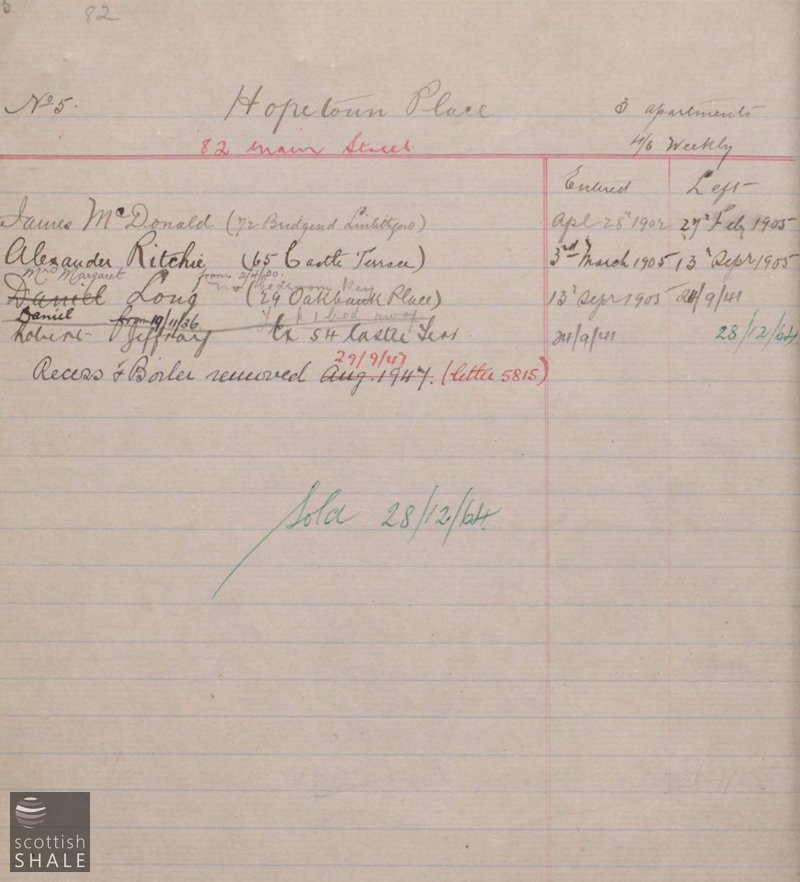 82
No 5. Hopetoun Place 3 apartments
82 Main Street 4/6 Weekly
Entered Left
James McDonald (72 Bridgend Linlithgow) Apl 28th 1902 27th Feby 1905
Alexander Ritchie (65 Castle Terrace) 3rd March 1905 13th Sepr 1905
Mrs Margaret from 2/4/30. no bedroom key
Daniel Long (29 Oakbank Place) 13th Sepr 1905 24/9/41
Daniel from 19/11/36 & 1 bed away
Robert Jeffray Ex 54 Castle Terr 24/9/41 28/12/64
29/9/47
Recess & Boiler removed Aug. 1947. (letter 5815)
Sold 28/12/64
scottish
SHALE